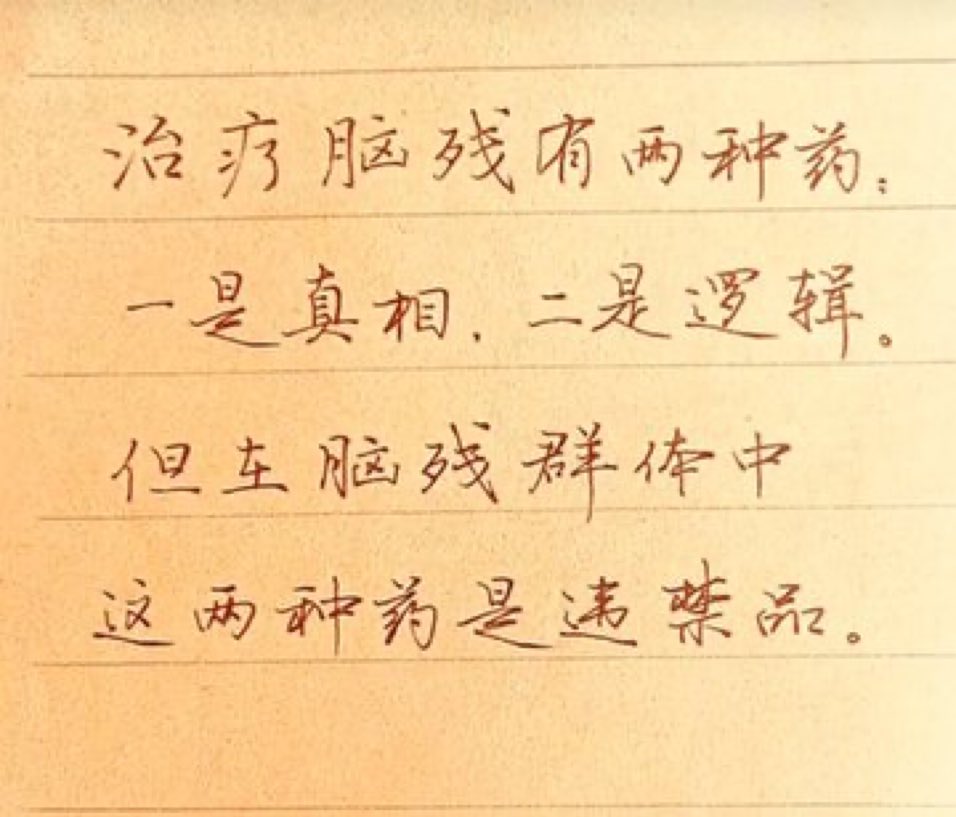 治疗脑残有两种药：
一是真相、二是逻辑。
但在脑残群体中
这两种药是违禁品。